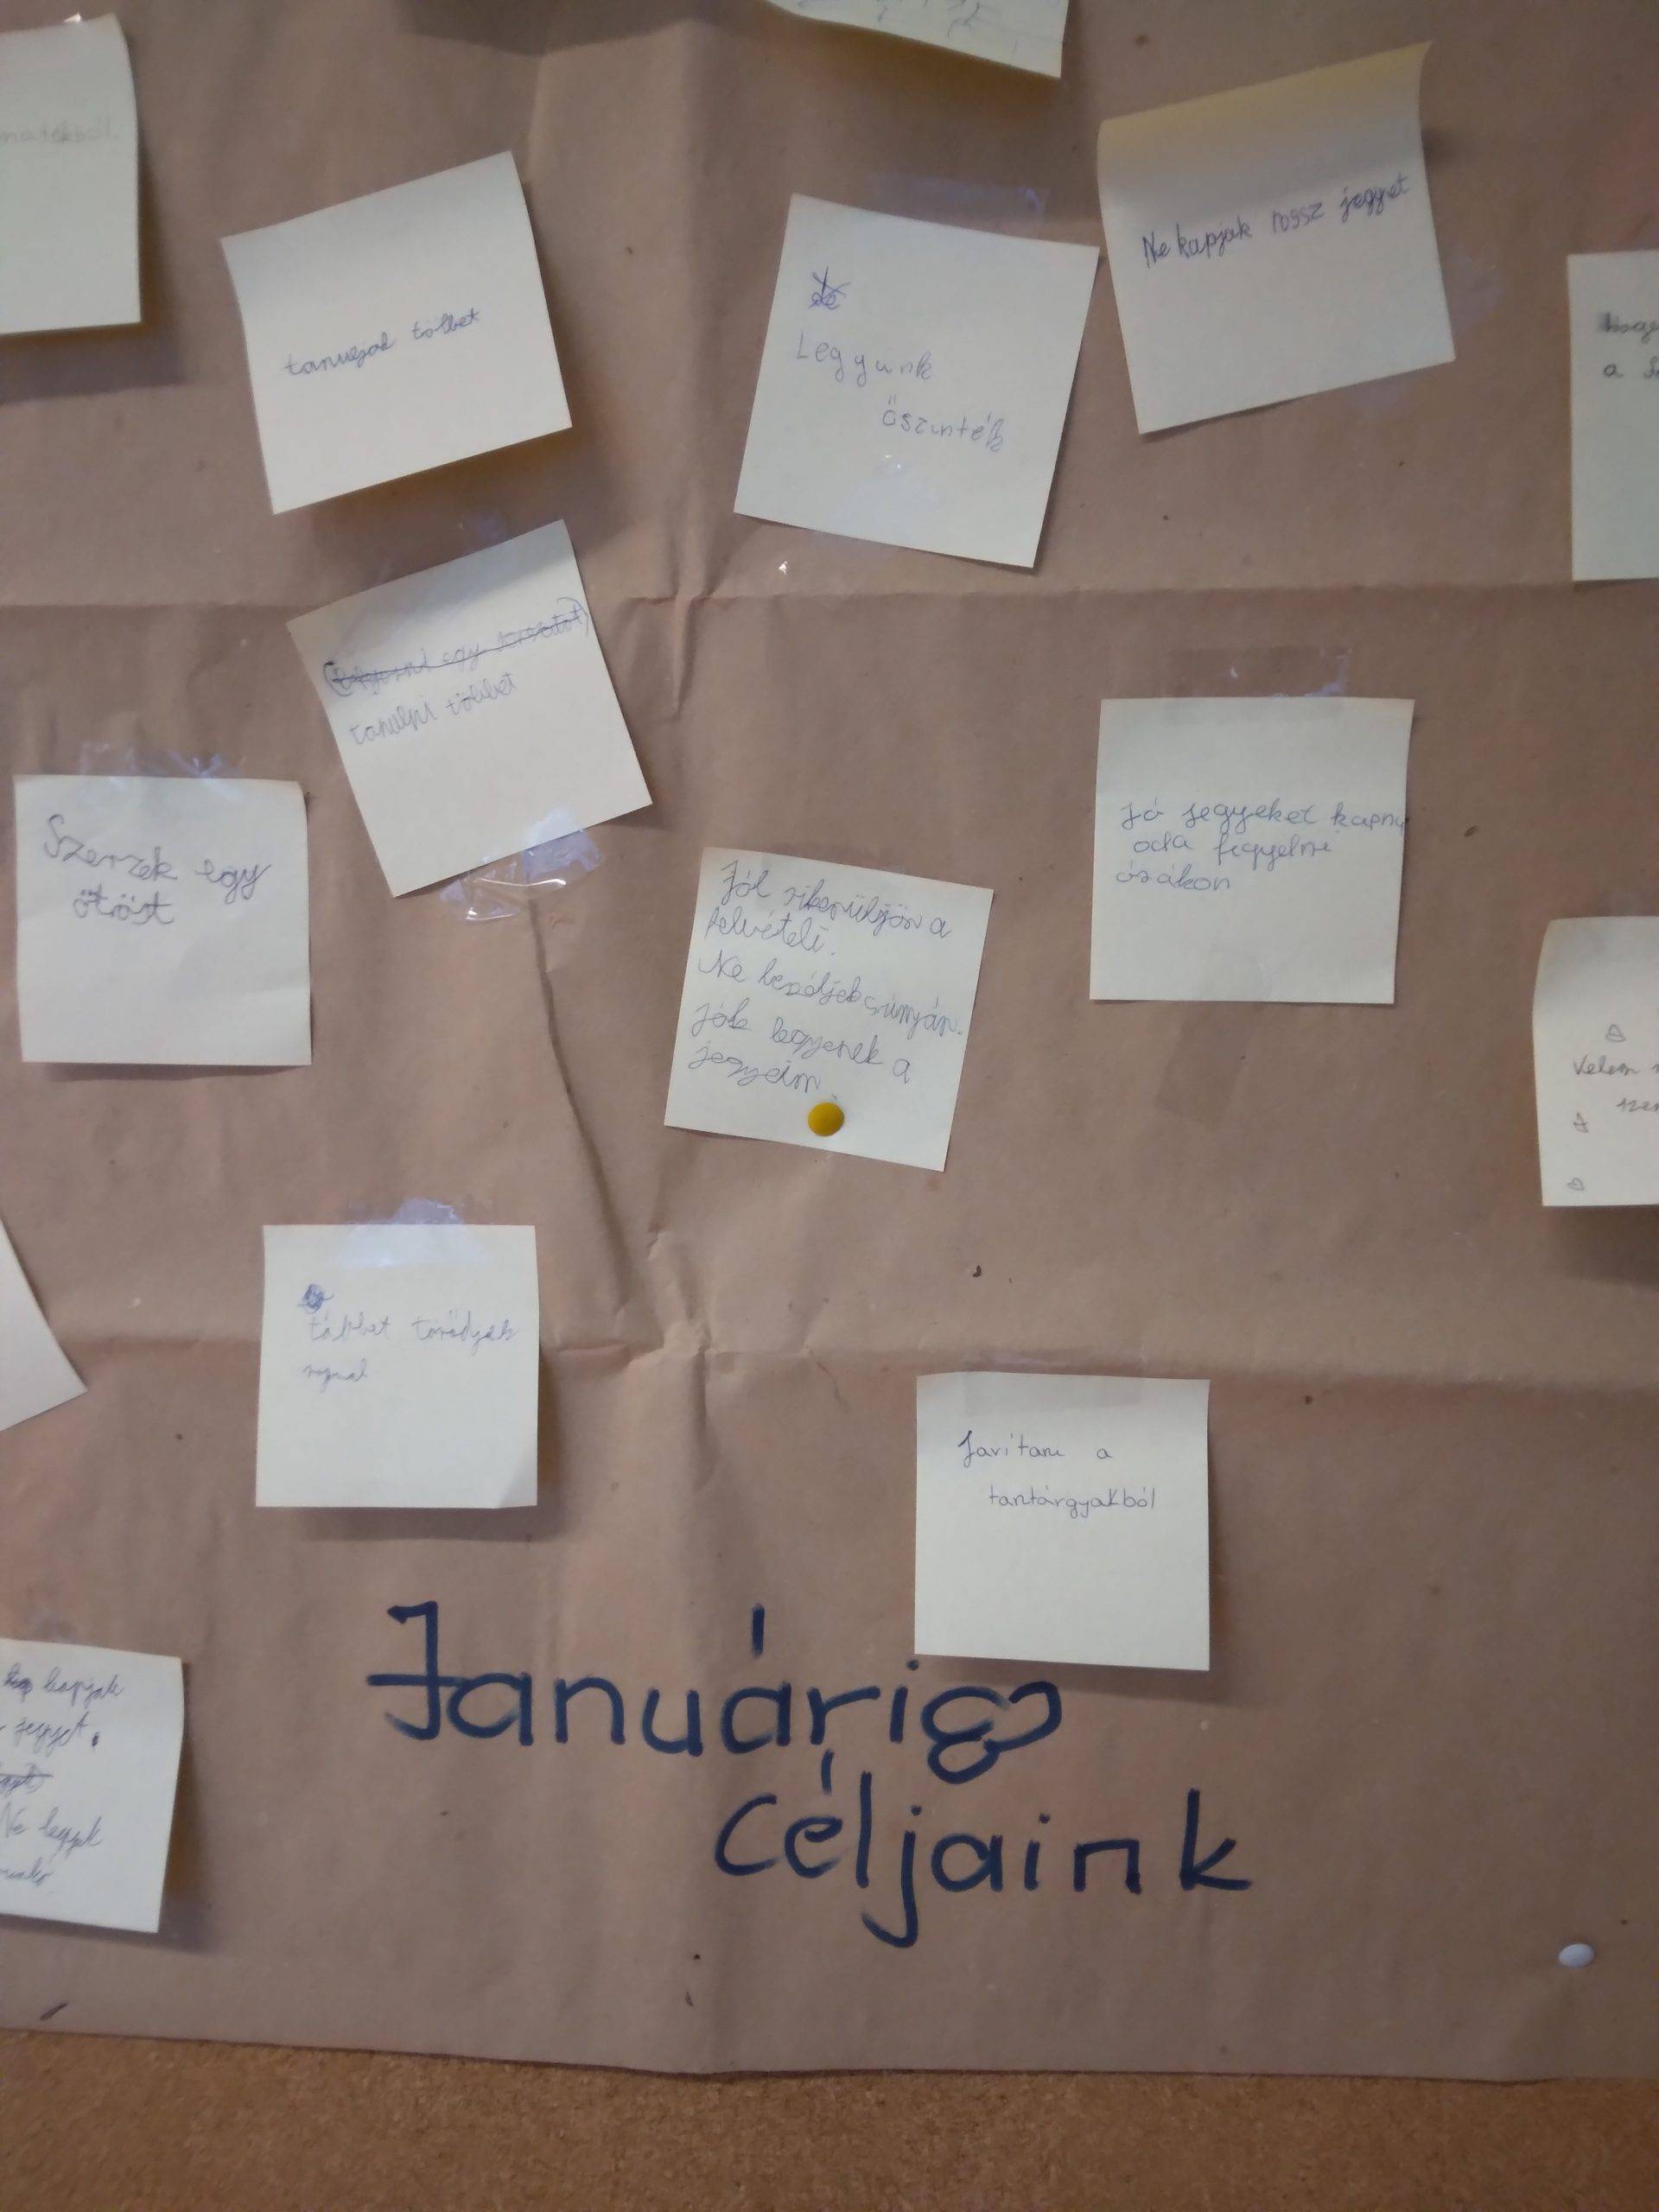 matekból.
tanuljak többet
Leggyünk
őszinték
Ne kapjak rossz jegyet
a
egy
tanulni többet
Szerzek egy
ötöst
Jól sikerüljön a
felvételi.
Ne beszéljek csúnyán.
jók legyenek a
jegyeim.
jó jegyeket kapni
oda figyelni
órákon
Velem
többet törődjek
Javítani a
tantárgyakból
kapjak
jegyet.
Ne legyek
Januári
céljaink